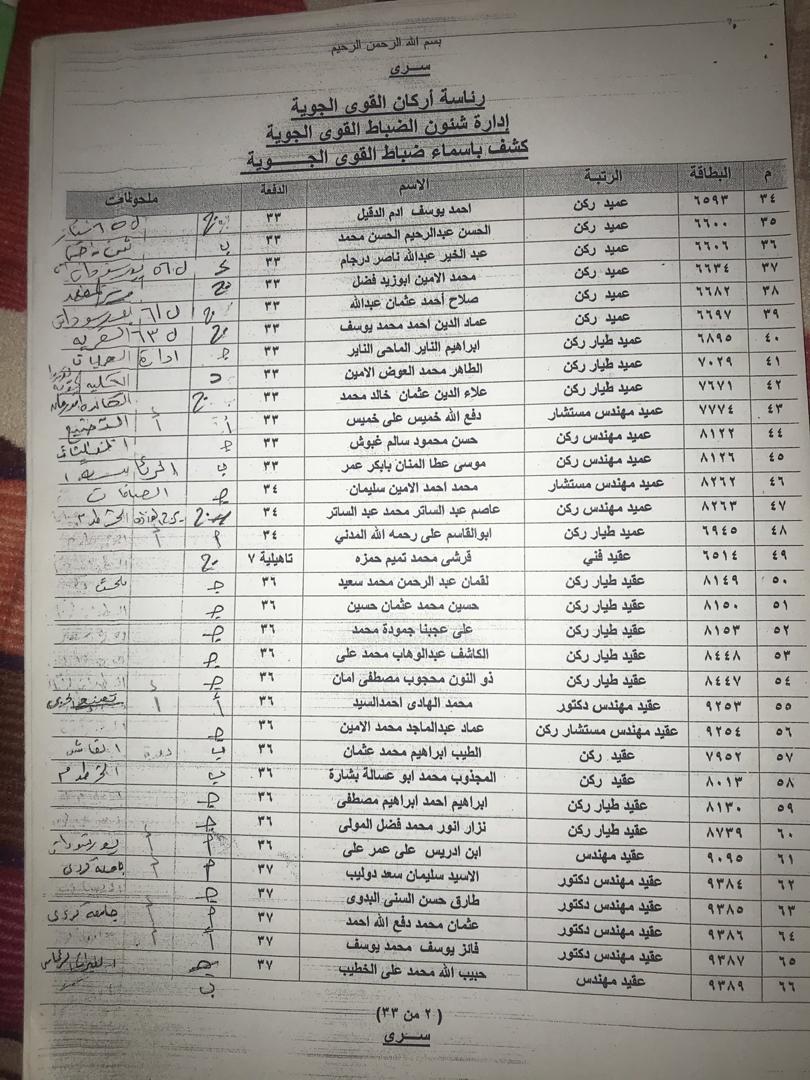 بسم الله الرحمن الرحيم
سرى
رئاسة أركان القوى الجوية
إدارة شئون الضباط القوى الجوية
كشف باسماء ضباط القوى الجوية
م البطاقة الرتبة الاسم الدفعة ملحوظات
٣٤ ٦٥٩٣ عميد ركن احمد يوسف ادم الدقيل ٣٣
٣٥ ٦٦٠٠ عميد ركن الحسن عبدالرحيم الحسن محمد ٣٣ ب
٣٦ ٦٦٠٦ عميد ركن عبد الخير عبدالله ناصر درجام ٣٣ بورسودان
٣٧ ٦٦٣٤ عميد ركن محمد الامين ابوزيد فضل ٣٣
٣٨ ٦٦٨٢ عميد ركن صلاح أحمد عثمان عبدالله ٣٣ بورسودان
٣٩ ٦٦٩٧ عميد ركن عماد الدين احمد محمد يوسف ٣٣
٤٠ ٦٨٩٥ عميد طيار ركن ابراهيم الناير الماحى الناير ٣٣ ج ادارة العمليات
٤١ ٧٠٢٩ عميد طيار ركن الطاهر محمد العوض الامين ٣٣ د الكلية
٤٢ ٧٦٧١ عميد طيار ركن علاء الدين عثمان خالد محمد ٣٣
٤٣ ٧٧٧٤ عميد مهندس مستشار دفع الله خميس على خميس ٣٣ أ أ التصنيع
٤٤ ٨١٢٢ عميد مهندس ركن حسن محمود سالم غبوش ٣٣ ج
٤٥ ٨١٢٦ عميد مهندس ركن موسى عطا المنان بابكر عمر ٣٣ ب
٤٦ ٨٢٦٢ عميد مهندس مستشار محمد احمد الامين سليمان ٣٤ ج
٤٧ ٨٢٦٣ عميد مهندس ركن عاصم عبد الساتر محمد عبد الساتر ٣٤
٤٨ ٦٩٤٥ عميد طيار ركن ابوالقاسم على رحمه الله المدني ٣٤
٤٩ ٦٥١٤ عقيد فني قرشى محمد تميم حمزه تاهيلية ٧
٥٠ ٨١٤٩ عقيد طيار ركن لقمان عبد الرحمن محمد سعيد ٣٦ ج
٥١ ٨١٥٠ عقيد طيار ركن حسين محمد عثمان حسين ٣٦ ج
٥٢ ٨١٥٣ عقيد طيار ركن على عجبنا جمودة محمد ٣٦ ج
٥٣ ٨٤٤٨ عقيد طيار ركن الكاشف عبدالوهاب محمد على ٣٦ ج
٥٤ ٨٤٤٧ عقيد طيار ركن ذو النون محجوب مصطفى امان ٣٦ ج
٥٥ ٩٢٥٣ عقيد مهندس دكتور محمد الهادى احمدالسيد ٣٦ أ
٥٦ ٩٢٥٤ عقيد مهندس مستشار ركن عماد عبدالماجد محمد الامين ٣٦ ج
٥٧ ٧٩٥٢ عقيد ركن الطيب ابراهيم محمد عثمان ٣٦
٥٨ ٨٠١٣ عقيد ركن المجذوب محمد ابو عسالة بشارة ٣٦ ب
٥٩ ٨١٣٠ عقيد طيار ركن ابراهيم احمد ابراهيم مصطفى ٣٦ ج
٦٠ ٨٧٣٩ عقيد طيار ركن نزار انور محمد فضل المولى ٣٦ ج
٦١ ٩٠٩٥ عقيد مهندس ابن ادريس على عمر على ٣٦ أ بورسودان
٦٢ ٩٣٨٤ عقيد مهندس دكتور الاسيد سليمان سعد دوليب ٣٧ جامعة كررى
٦٣ ٩٣٨٥ عقيد مهندس دكتور طارق حسن السنى البدوى ٣٧ ج
٦٤ ٩٣٨٦ عقيد مهندس دكتور عثمان محمد دفع الله احمد ٣٧ جامعة كررى
٦٥ ٩٣٨٧ عقيد مهندس دكتور فائز يوسف محمد يوسف ٣٧
٦٦ ٩٣٨٩ عقيد مهندس حبيب الله محمد على الخطيب ٣٧
(٢ من ٣٣)
سرى